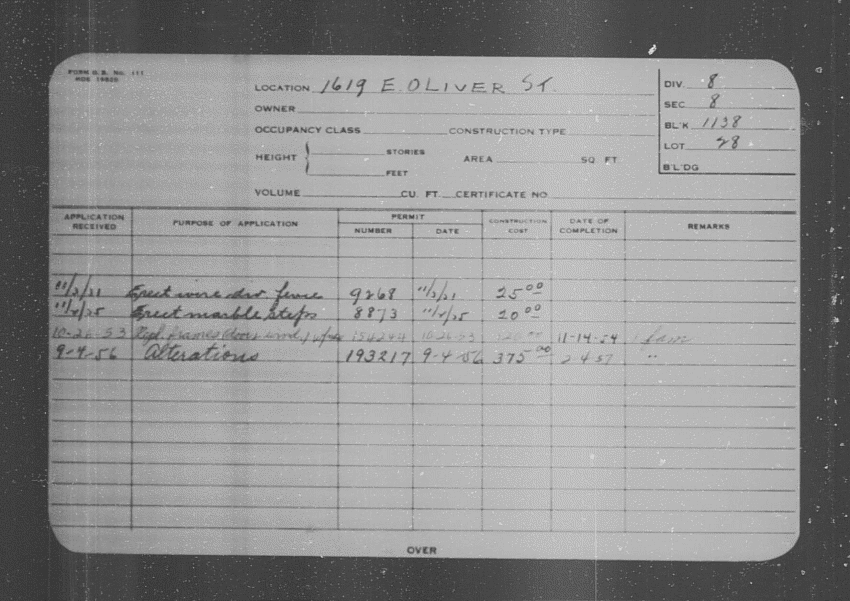 FORM B. B. No. 111
LOCATION 1619 E. OLIVER ST.
OWNER
OCCUPANCY CLASS CONSTRUCTION TYPE
HEIGHT { STORIES AREA SQ. FT.
FEET
VOLUME CU. FT. CERTIFICATE NO.
DIV. 8
SEC. 8
BL'K 1138
LOT 28
B'L'DG
APPLICATION RECEIVED PURPOSE OF APPLICATION PERMIT NUMBER DATE CONSTRUCTION COST DATE OF COMPLETION REMARKS
11/2/21 Erect wire div fence 9268 11/2/21 25 00
11/4/25 Erect marble steps 8873 11/4/25 20 00
10-26-53 Repl. frames (doors wind.) 10-26-53 11-14-54 1 fam
9-4-56 Alterations 193217 9-4-56 375 00 2 4 57 "
OVER